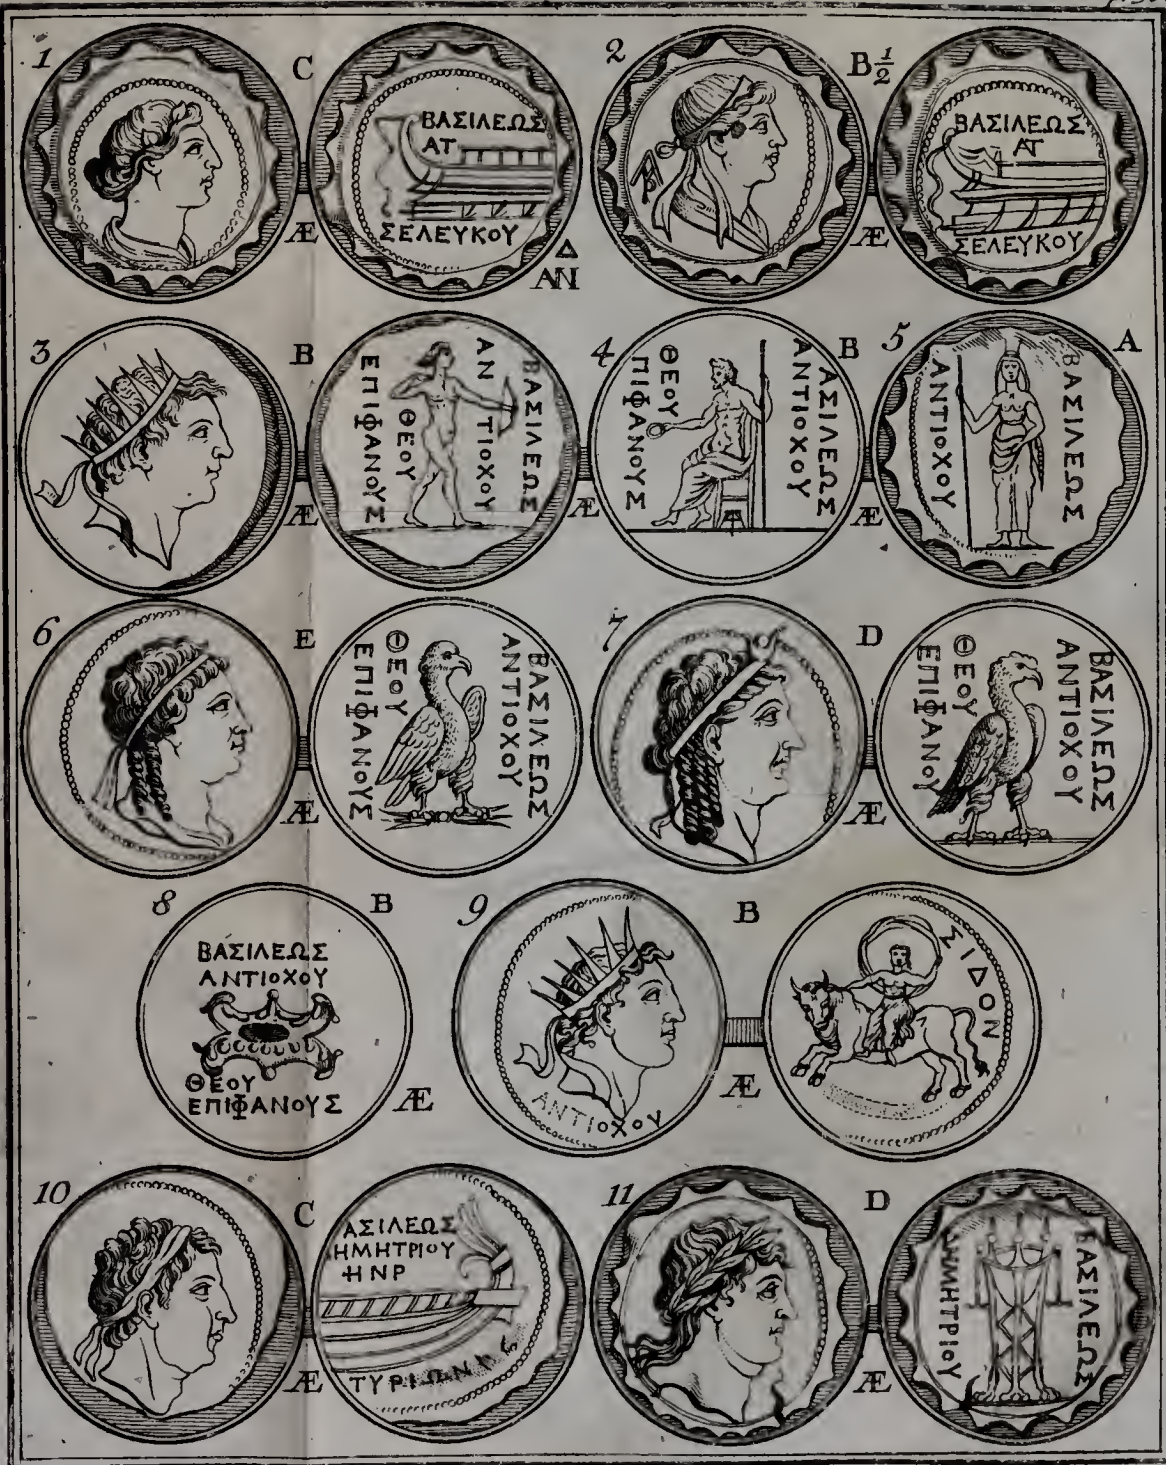 1
C
ΒΑΣΙΛΕΩΣ
ΑΤ
ΣΕΛΕΥΚΟΥ
Æ
Δ
ΑΝ
2
B½
ΒΑΣΙΛΕΩΣ
ΑΤ
ΣΕΛΕΥΚΟΥ
Æ
3
B
ΒΑΣΙΛΕΩΣ
ΑΝ ΤΙΟΧΟΥ
ΘΕΟΥ
ΕΠΙΦΑΝΟΥΣ
Æ
4
B
ΑΣΙΛΕΩΣ
ΑΝΤΙΟΧΟΥ
ΘΕΟΥ
ΠΙΦΑΝΟΥΣ
Æ
5
A
ΒΑΣΙΛΕΩΣ
ΑΝΤΙΟΧΟΥ
Æ
6
E
ΒΑΣΙΛΕΩΣ
ΑΝΤΙΟΧΟΥ
ΘΕΟΥ
ΕΠΙΦΑΝΟΥΣ
Æ
7
D
ΒΑΣΙΛΕΩΣ
ΑΝΤΙΟΧΟΥ
ΘΕΟΥ
ΕΠΙΦΑΝΟΥ
Æ
8
B
ΒΑΣΙΛΕΩΣ
ΑΝΤΙΟΧΟΥ
ΘΕΟΥ
ΕΠΙΦΑΝΟΥΣ
Æ
9
B
ΑΝΤΙΟΧΟΥ
ΣΙΔΟΝ
Æ
10
C
ΑΣΙΛΕΩΣ
ΗΜΗΤΡΙΟΥ
ΗΝΡ
ΤΥΡΙΩΝ
Æ
11
D
ΒΑΣΙΛΕΩΣ
ΔΗΜΗΤΡΙΟΥ
Æ